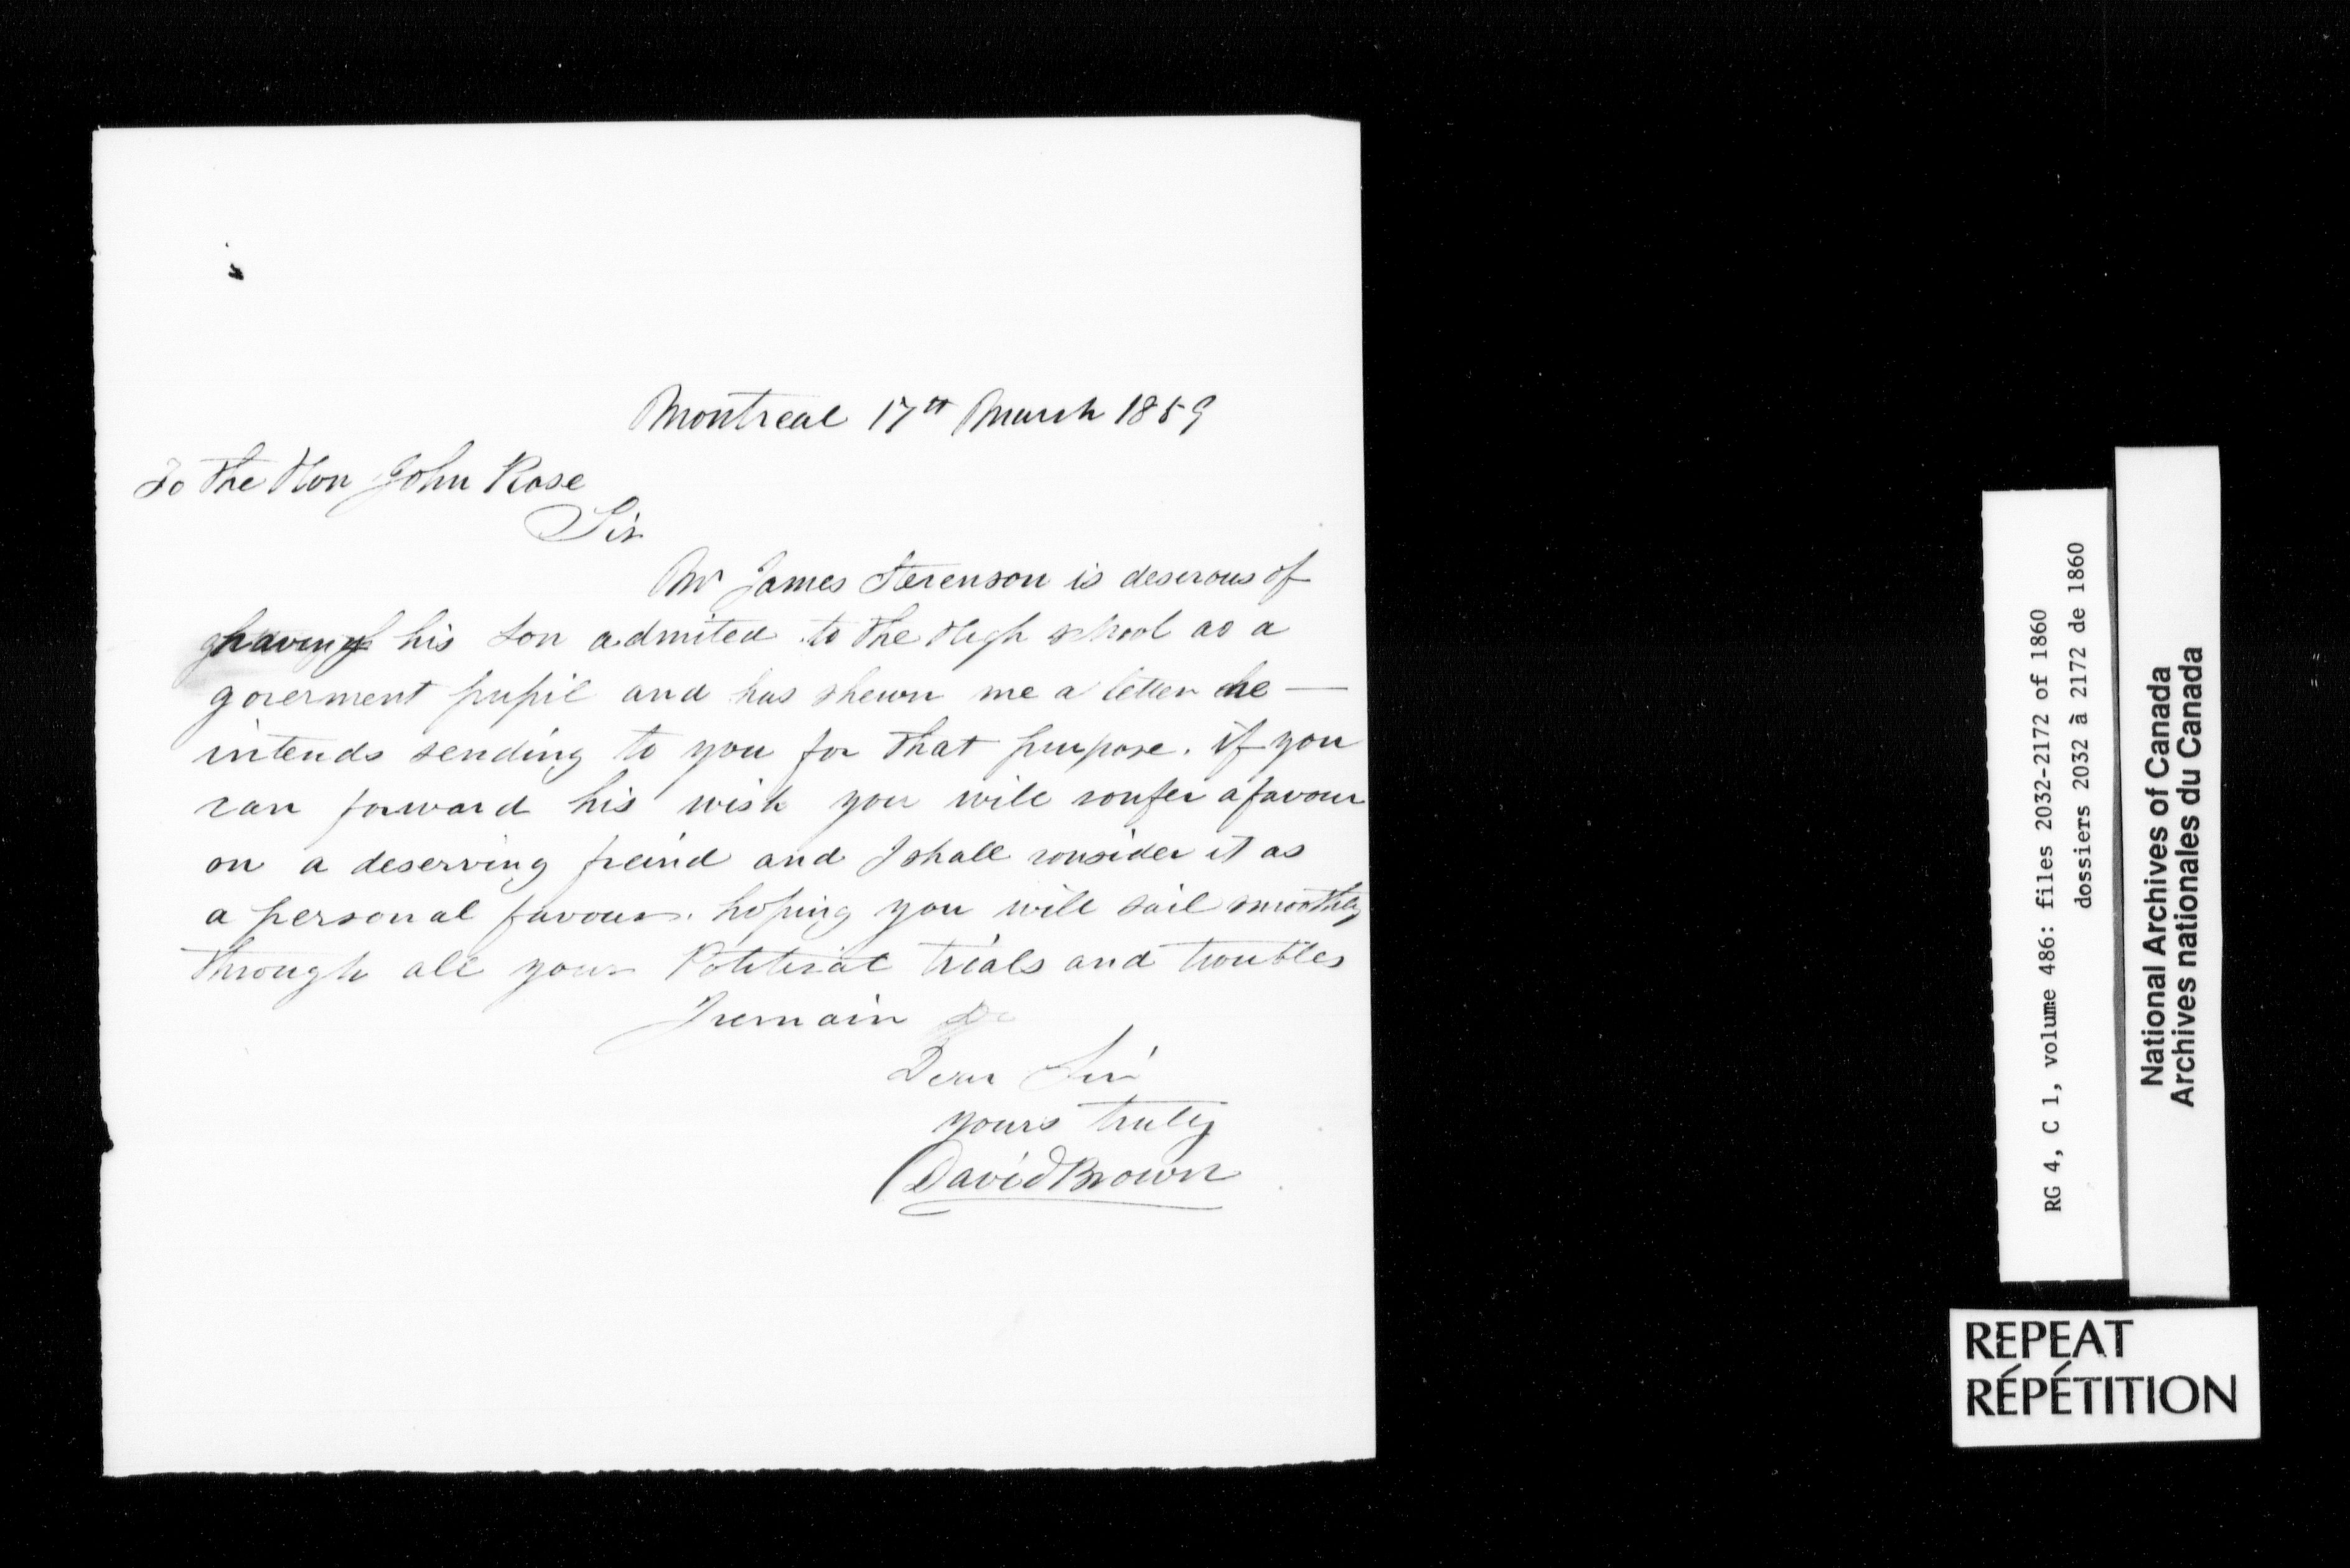 Montreal 17th March 1859
To the Hon John Rose
Sir
Mr James Stevenson is deserous of
having his son admited to the High school as a
goverment pupil and has shewn me a letter he —
intends sending to you for that purpose. if you
can forward his wish you will confer a favour
on a deserving freind and I shall consider it as
a personal favour. hoping you will sail smoothly
through all your Political trials and troubles
I remain
Dear Sir
yours truly
David Brown
RG 4, C 1, volume 486: files 2032-2172 of 1860
dossiers 2032 à 2172 de 1860
National Archives of Canada
Archives nationales du Canada
REPEAT
RÉPÉTITION